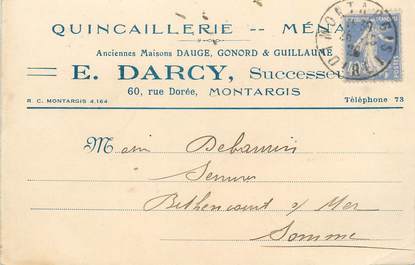 QUINCAILLERIE -- MÉNA
Anciennes Maisons DAUGE, GONORD & GUILLAUME
E. DARCY, Successeu
60, rue Dorée, MONTARGIS
R. C. MONTARGIS 4.164
Téléphone 73
M
Bethencourt s/ Mer
Somme